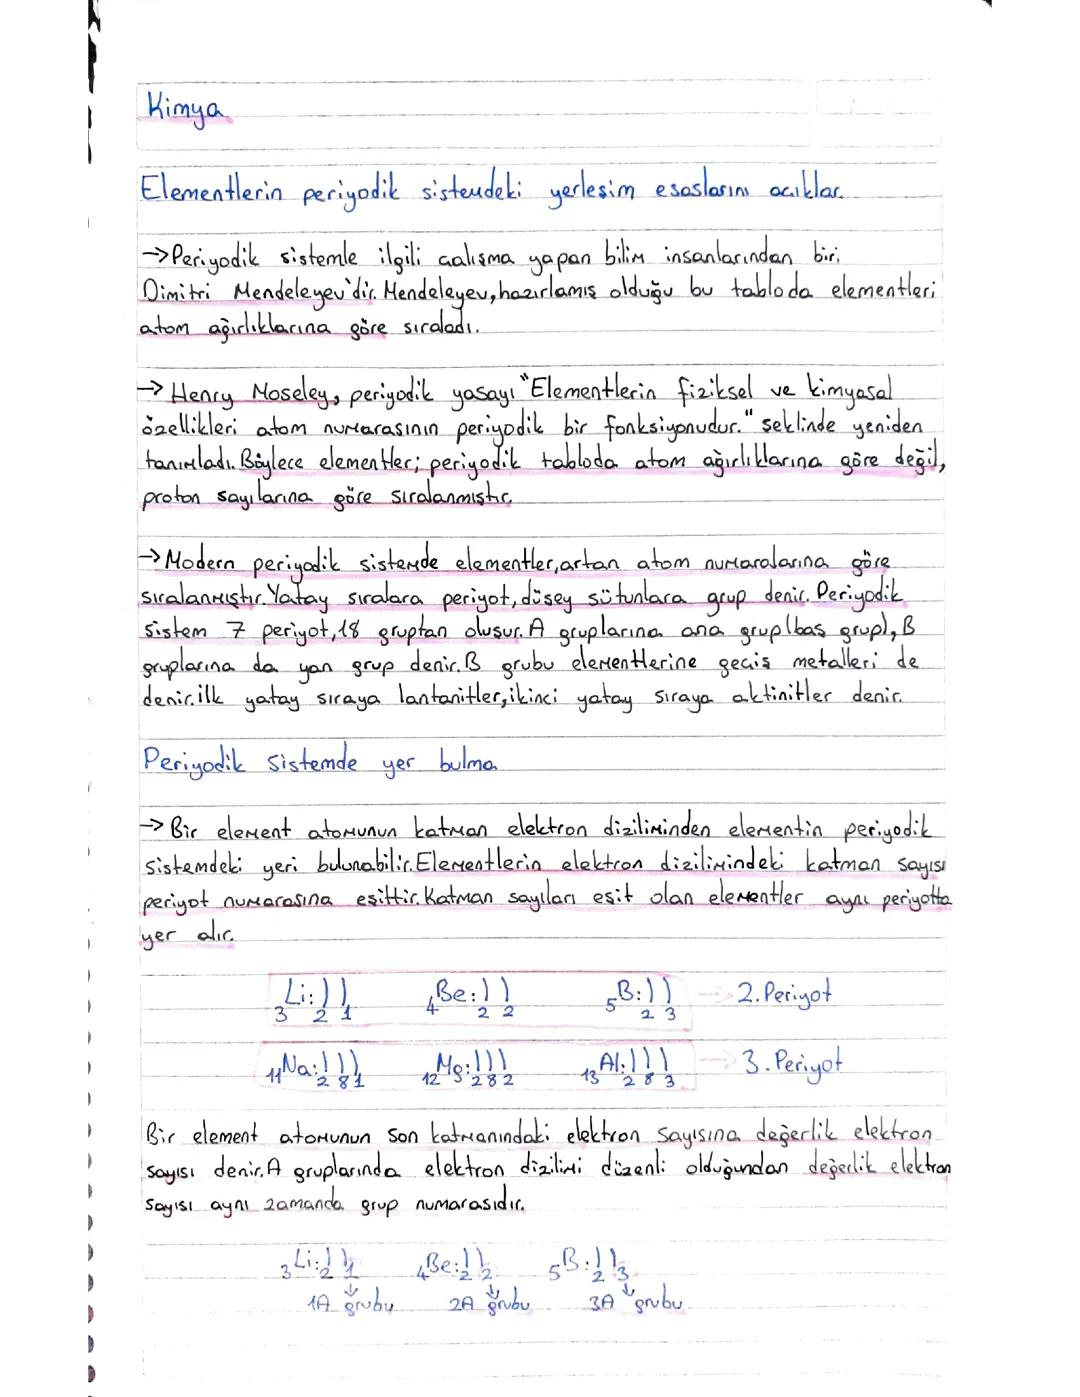 Kimya
Elementlerin periyodik sistemdeki yerleşim esaslarını acıklar.
→Periyodik sistemle ilgili calışma yapan bilim insanlarından biri
Dimitri Mendeleyev'dir. Mendeleyev,hazırlamış olduğu bu tabloda elementleri
atom ağırlıklarına göre sıraladı.
→ Henry Moseley, periyodik yasayı "Elementlerin fiziksel ve kimyasal
özellikleri atom numarasının periyodik bir fonksiyonudur." seklinde yeniden
tanımladı. Böylece elementler; periyodik tabloda atom ağırlıklarına göre değil,
proton sayılarına göre sıralanmıştır.
→Modern periyodik sistemde elementler,artan atom numaralarına göre
sıralanmıştır.Yatay sıralara periyot,düsey sütunlara grup denir. Periyodik
sistem 7 periyot,18 gruptan oluşur. A gruplarına ana grup(bas grup), B
gruplarına da yan grup denir.B grubu elementlerine gecis metalleri de
denir.ilk yatay sıraya lantanitler,ikinci yatay sıraya aktinitler denir.
Periyodik sistemde yer bulma
→ Bir element atomunun katman elektron diziliminden elementin periyodik
sistemdeki yeri bulunabilir.Elementlerin elektron dizilimindeki katman sayısı
periyot numarasına eşittir.Katman sayıları eşit olan elementler aynı periyotta
yer alır.
₃Li:) ) 2 1 ₄Be:) ) 2 2 ₅B:) ) 2 3 → 2.Periyot
₁₁Na:) ) ) 2 8 1 ₁₂Mg:) ) ) 2 8 2 ₁₃Al:) ) ) 2 8 3 → 3.Periyot
Bir element atomunun son katmanındaki elektron sayısına değerlik elektron
sayısı denir.A gruplarında elektron dizilimi düzenli olduğundan değerlik elektron
sayısı aynı zamanda grup numarasıdır.
₃Li:) ) 2 1 ₄Be:) ) 2 2 ₅B:) ) 2 3
↓ ↓ ↓
1A grubu 2A grubu 3A grubu